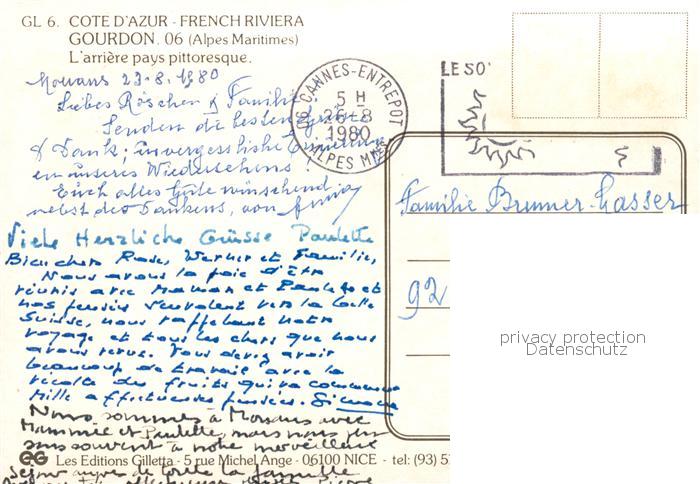 GL 6. COTE D'AZUR - FRENCH RIVIERA
GOURDON. 06 (Alpes Maritimes)
L'arrière pays pittoresque.
Mouans 23.8.1980
Liebes Röschen & Familie
Senden die besten Grüsse
& Dank, unvergessliche Erinnerung
an unseres Wiedersehens!
Euch alles Gute wünschend
nebst des Dankens, von
Viele Herzliche Grüsse Paulette
Bien chers Rose, Werner et Famille,
Nous avons la joie d'être
réunis avec Maman et Paulette et
nos pensées s'envolent vers la belle
Suisse, nous rappelant notre
voyage et tous les chers que nous
avons revus. Vous devez avoir
beaucoup de travail avec la
récolte des fruits qui va commencer
Mille affectueuses pensées. Simone
Nous sommes à Mouans avec
Mammie et Paulette, mais nous
souvent à notre merveilleux
séjour auprès de toute la famille
Pierre
CANNES-ENTREPOT
5 H
26-8
1980
ALPES MMES
LE SO
Familie Brunner-Gasser
92
privacy protection
Datenschutz
EG Les Editions Gilletta - 5 rue Michel Ange - 06100 NICE - tel: (93) 5